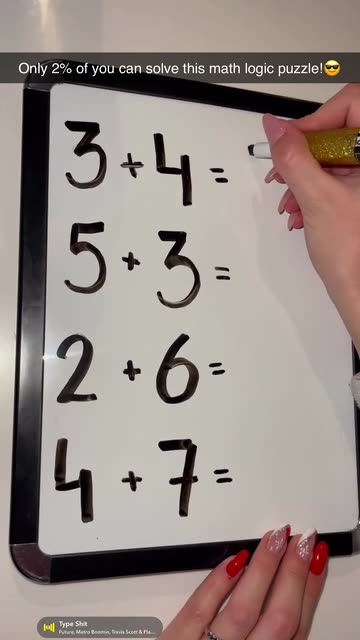 Only 2% of you can solve this math logic puzzle!😎
3 + 4 =
5 + 3 =
2 + 6 =
4 + 7 =
Type Shit
Future, Metro Boomin, Travis Scott & Pla...